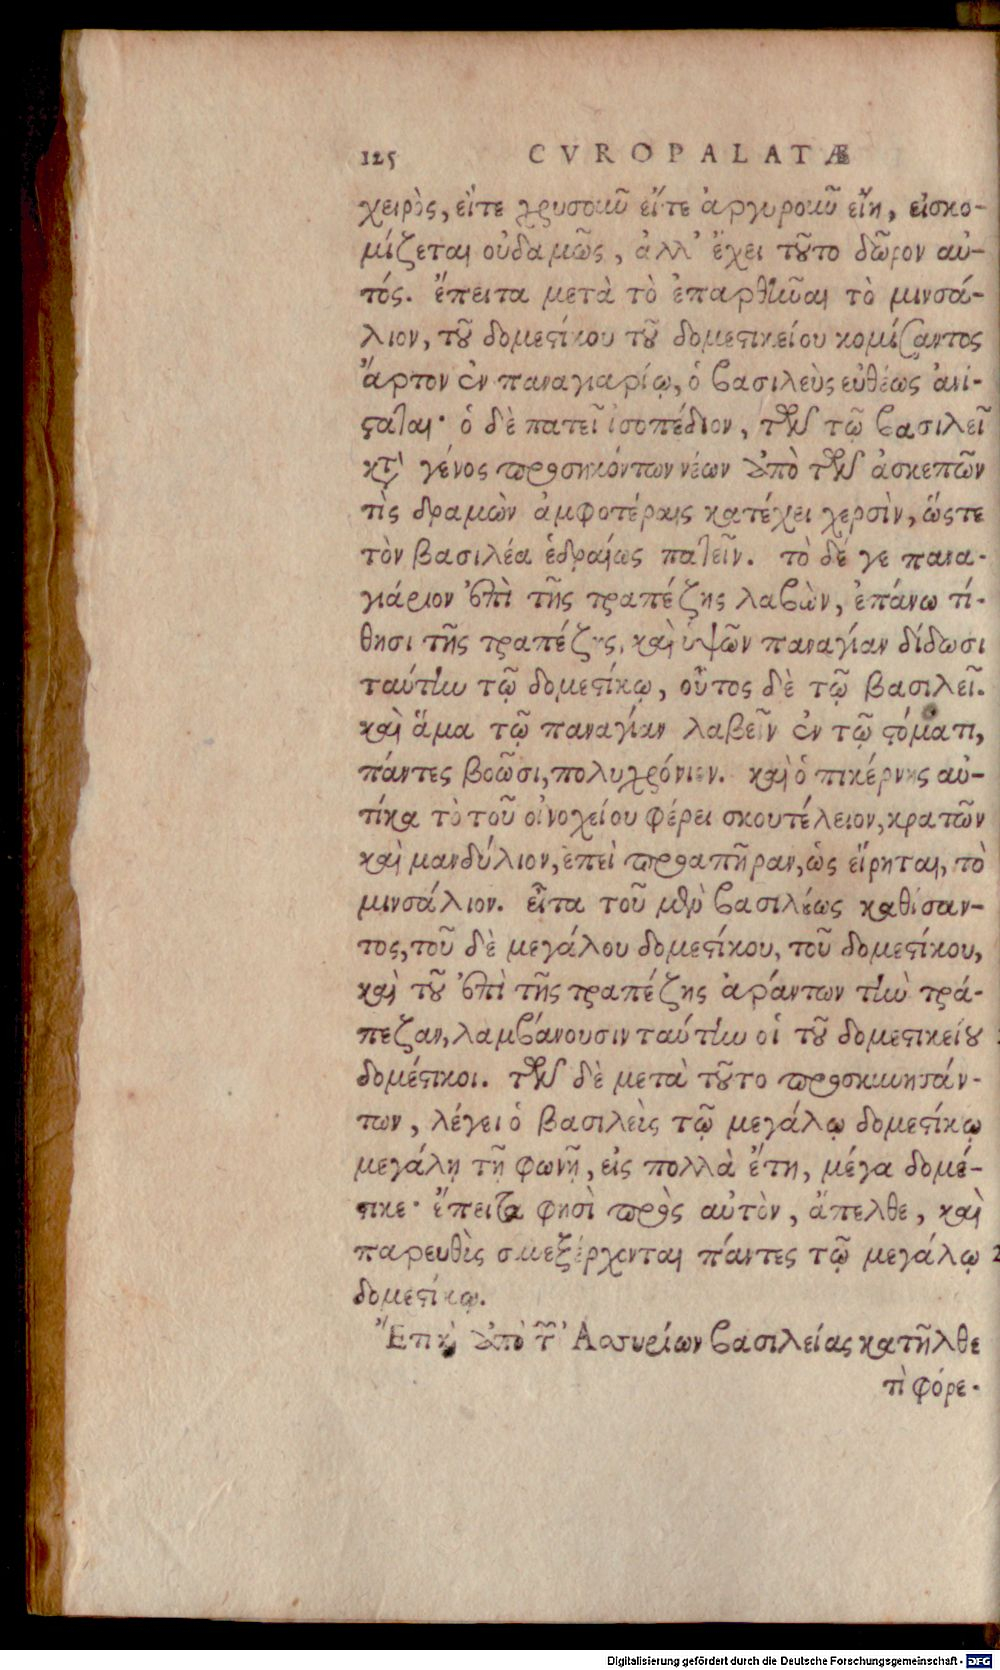 125 CVROPALATÆ
χειρὸς, εἴτε χρυσοῦν εἴτε ἀργυροῦν εἴη, εἰσκο-
μίζεται οὐδαμῶς, ἀλλ' ἔχει τοῦτο δῶρον αὐ-
τός. ἔπειτα μετὰ τὸ ἐπαρθῆναι τὸ μινσά-
λιον, τοῦ δομεστίκου τοῦ δομεστικείου κομίσαντος
ἄρτον ἐν παναγιαρίῳ, ὁ βασιλεὺς εὐθέως ἀνί-
σταται· ὁ δὲ πατεῖ ἰσοπέδιον, τῶν τῷ βασιλεῖ
κατὰ γένος προσηκόντων νέων ἀπὸ τῶν ἀσκεπῶν
τὶς δραμὼν ἀμφοτέραις κατέχει χερσὶν, ὥστε
τὸν βασιλέα ἑδραίως πατεῖν. τὸ δέ γε πανα-
γιάριον ἐπὶ τῆς τραπέζης λαβὼν, ἐπάνω τί-
θησι τῆς τραπέζης, καὶ ὑψῶν παναγίαν δίδωσι
ταύτην τῷ δομεστίκῳ, οὗτος δὲ τῷ βασιλεῖ.
καὶ ἅμα τῷ παναγίαν λαβεῖν ἐν τῷ στόματι,
πάντες βοῶσι, πολυχρόνιον. καὶ ὁ πικέρνης αὐ-
τίκα τὸ τοῦ οἰνοχείου φέρει σκουτέλειον, κρατῶν
καὶ μανδύλιον, ἐπεὶ προαπῆραν, ὡς εἴρηται, τὸ
μινσάλιον. εἶτα τοῦ μὲν βασιλέως καθίσαν-
τος, τοῦ δὲ μεγάλου δομεστίκου, τοῦ δομεστίκου,
καὶ τοῦ ἐπὶ τῆς τραπέζης ἀράντων τὴν τρά-
πεζαν, λαμβάνουσιν ταύτην οἱ τοῦ δομεστικείου
δομέστικοι. τῶν δὲ μετὰ τοῦτο προσκυνησάν-
των, λέγει ὁ βασιλεὺς τῷ μεγάλῳ δομεστίκῳ
μεγάλῃ τῇ φωνῇ, εἰς πολλὰ ἔτη, μέγα δομέ-
στικε· ἔπειτα φησὶ πρὸς αὐτὸν, ἄπελθε, καὶ
παρευθὺς συνεξέρχονται πάντες τῷ μεγάλῳ
δομεστίκῳ.
Ἔτι καὶ ἀπὸ τῆς Ἀσσυρίων βασιλείας κατῆλθε
τὶ φόρε-
Digitalisierung gefördert durch die Deutsche Forschungsgemeinschaft - DFG